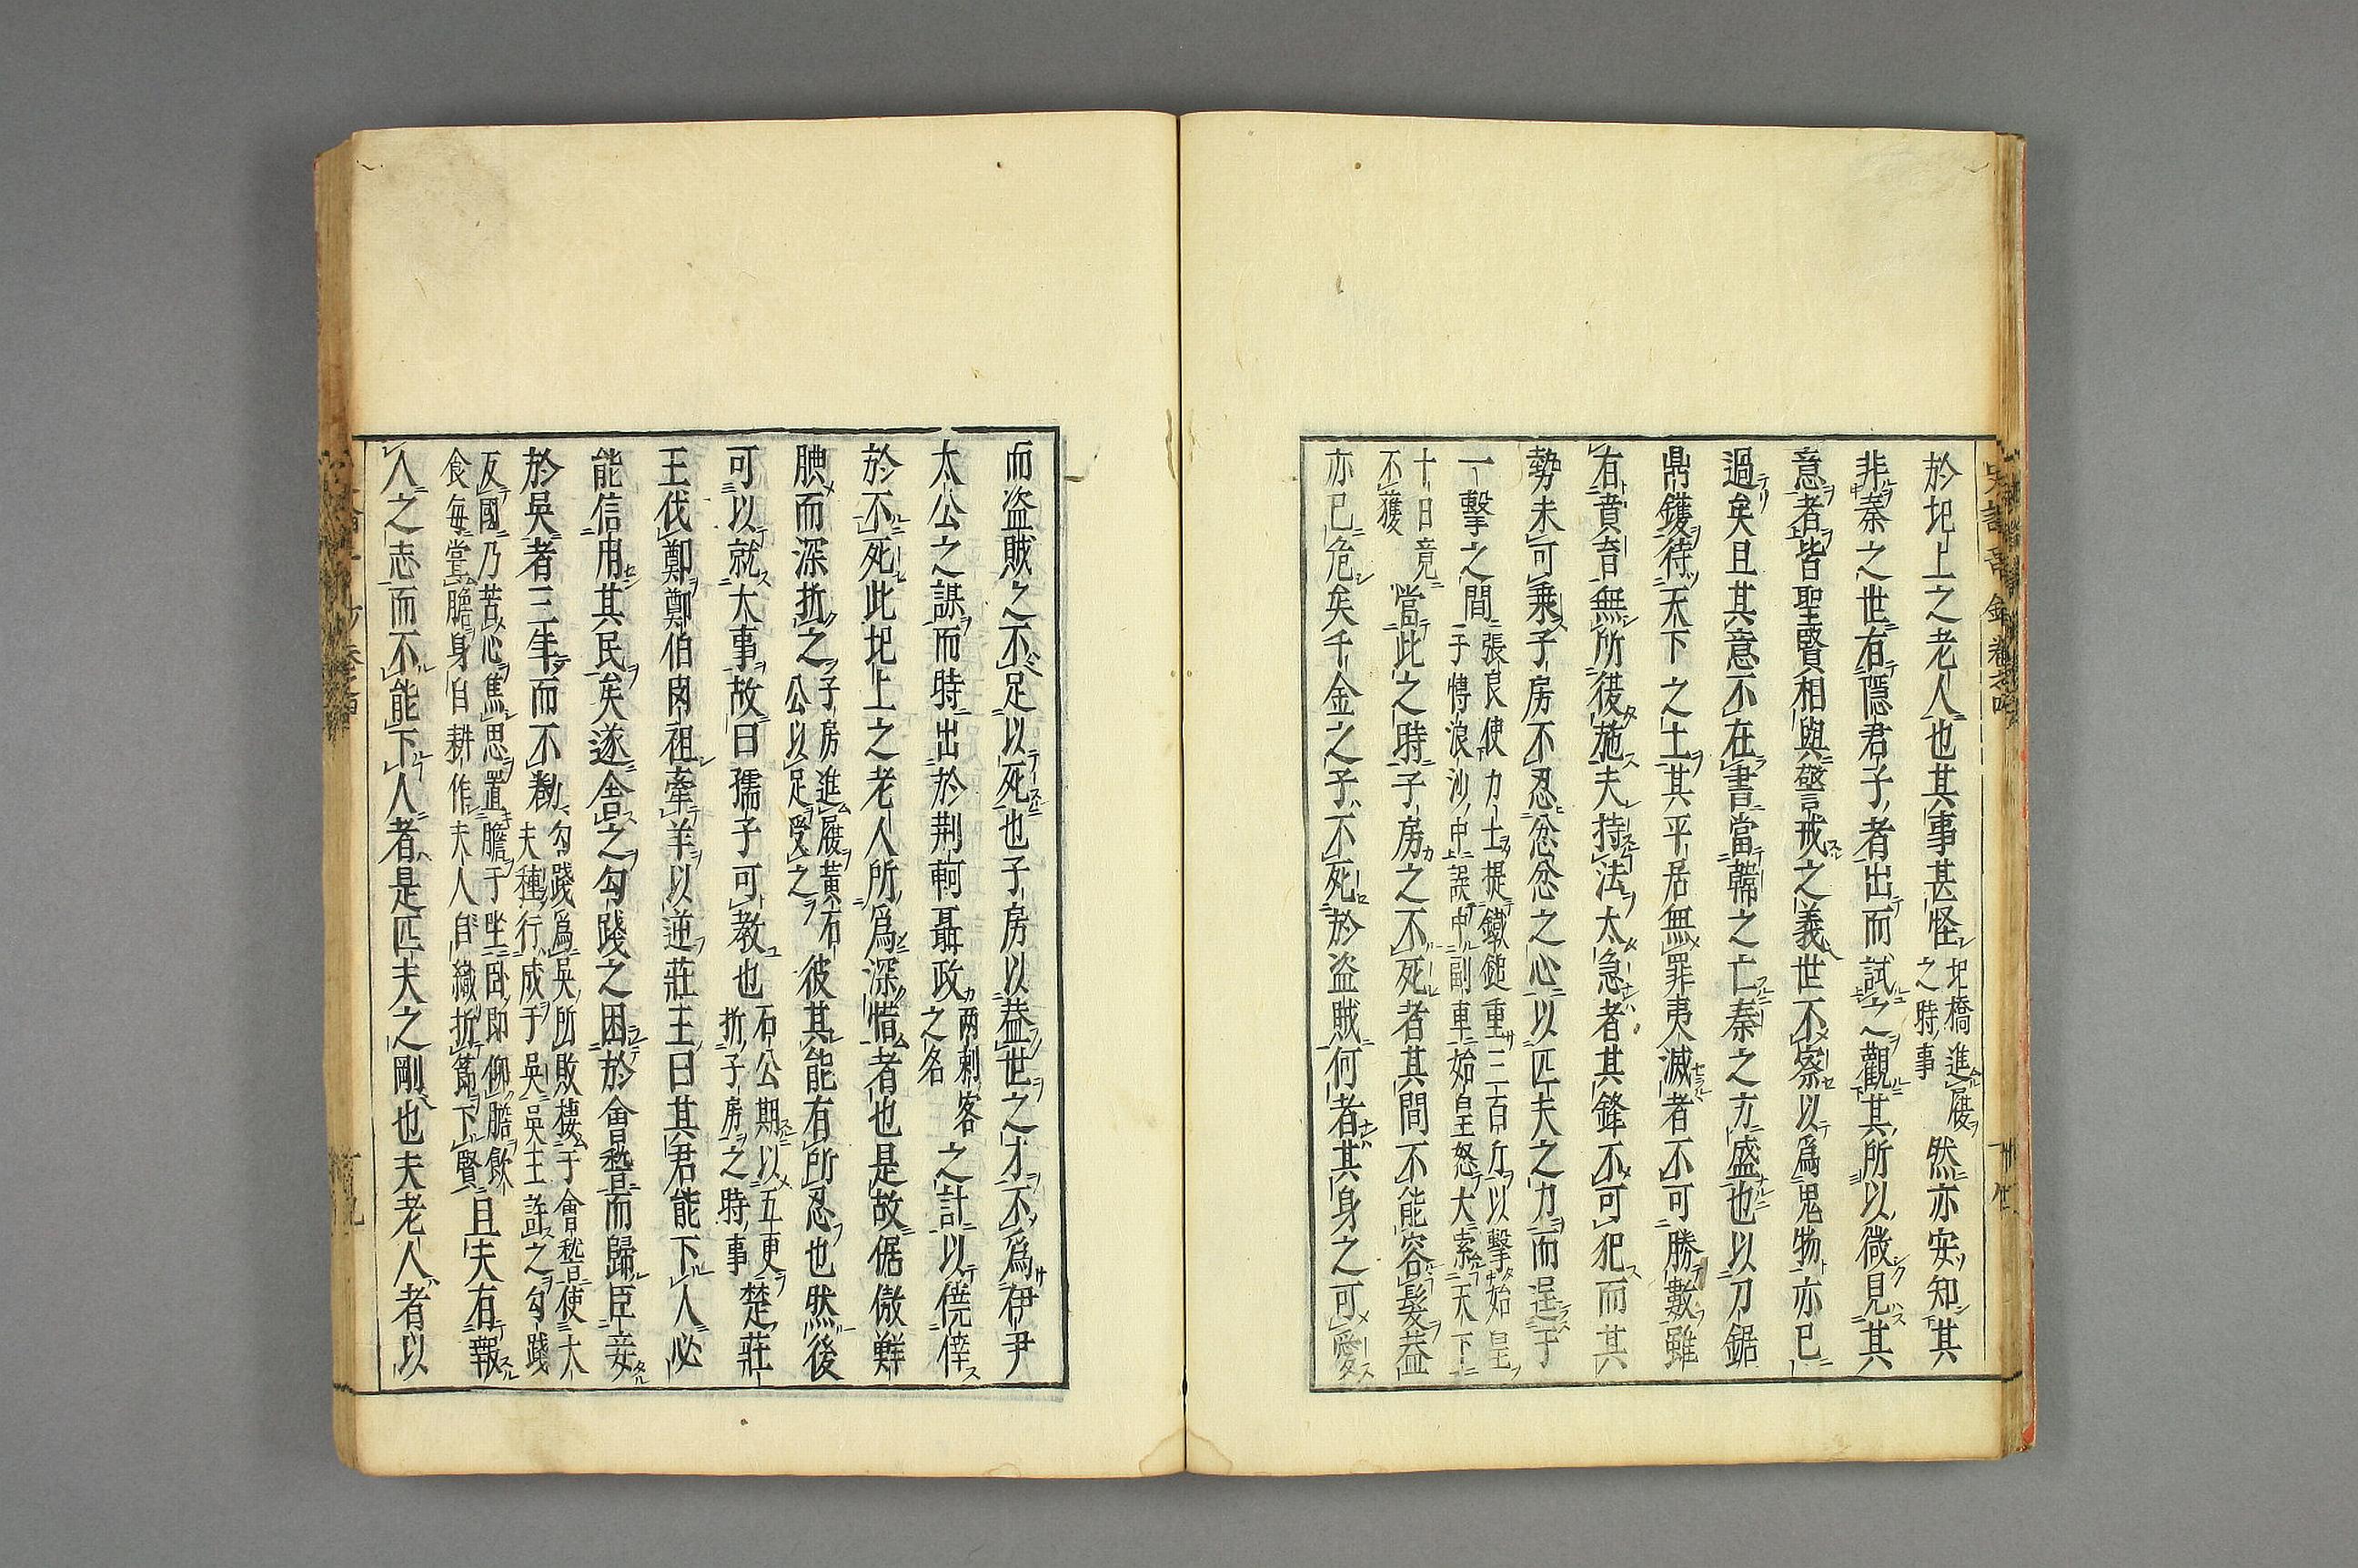 於圯上之老人也其事甚怪圯橋進履之時事然亦安知其
非秦之世有隱君子者出而試之觀其所以微見其
意者皆聖賢相與警戒之義世不察以爲鬼物亦已
過矣且其意不在書當韓之亡秦之方盛也以刀鋸
鼎鑊待天下之士其平居無罪夷滅者不可勝數雖
有賁育無所復施夫持法太急者其鋒不可犯而其
勢未可乘子房不忍忿忿之心以匹夫之力而逞于
一擊之間張良使力士提鐵鎚重三百斤以擊始皇于慱浪沙中誤中副車始皇怒大索天下
十日竟不獲當此之時子房之不死者其間不能容髮益
亦已危矣千金之子不死於盗賊何者其身之可愛
而盗賊之不足以死也子房以葢世之才不爲伊尹
太公之謀而時出於荆軻聶政兩刺客之名之計以僥倖
於不死此圯上之老人所爲深惜者也是故倨傲鮮
腆而深折之子房進履黃石公以足受之彼其能有所忍也然後
可以就大事故曰孺子可教也石公期以五更折子房之時事楚莊
王伐鄭鄭伯肉袒牽羊以逆莊王曰其君能下人必
能信用其民矣遂舍之勾踐之困於會稽而歸臣妾
於吳者三年而不勌勾踐爲吳所敗棲于會嵇使大夫種行成于吳吳王許之勾踐
反國乃苦心焦思置膽于坐卧即仰膽飲食每嘗膽身自耕作夫人自織折節下賢且夫有報
人之志而不能下人者是匹夫之剛也夫老人者以